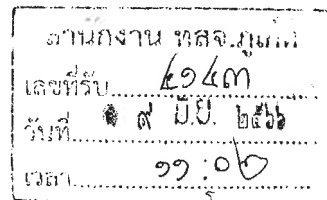 สำนักงาน ทสจ.ภูเก็ต
เลขที่รับ ๔๑๔๓
วันที่ ๙ มิ.ย. ๒๕๖๖
เวลา ๑๑:๐๒